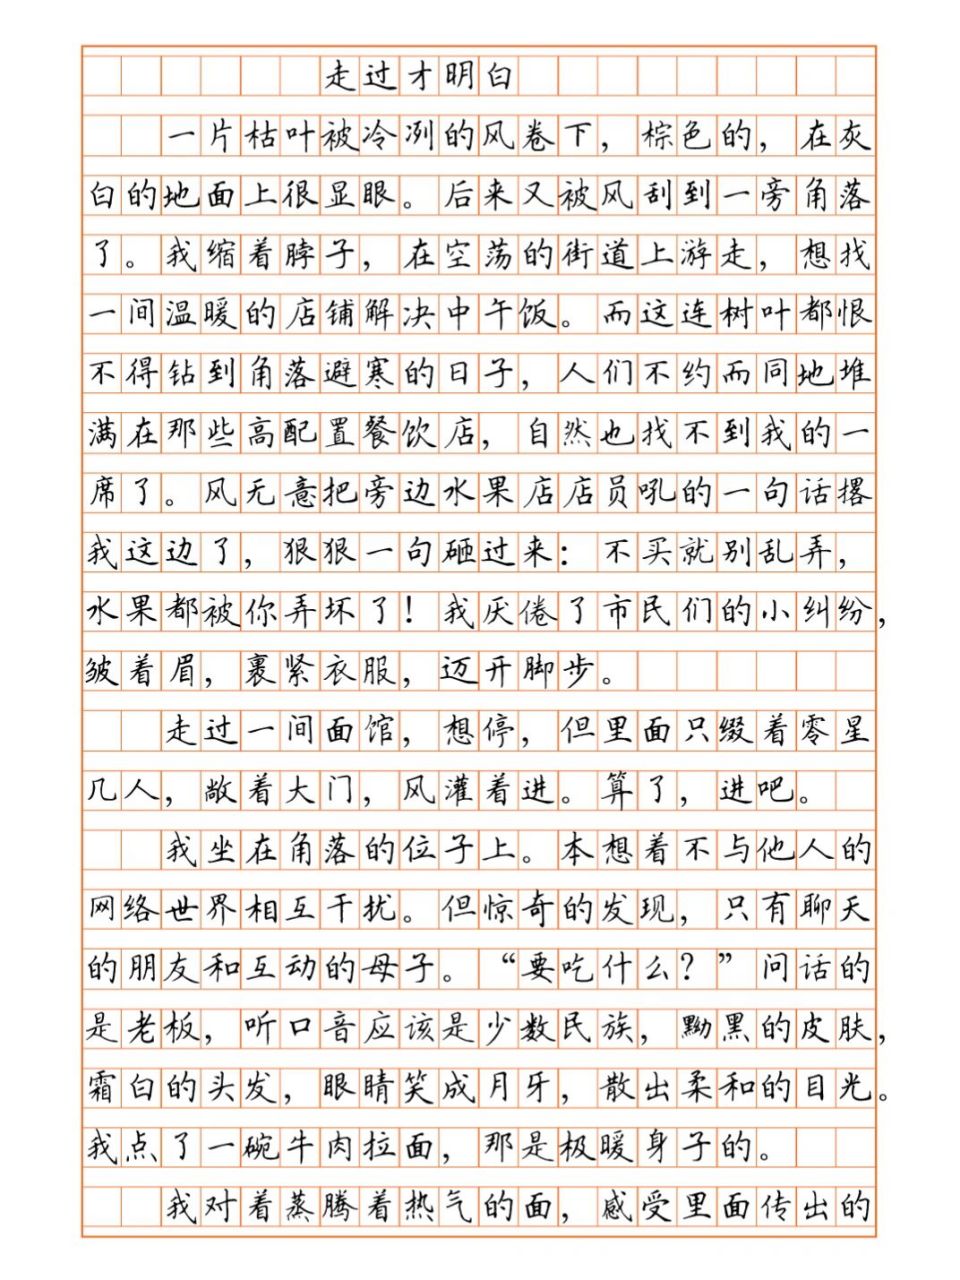 走过才明白
一片枯叶被冷冽的风卷下，棕色的，在灰
白的地面上很显眼。后来又被风刮到一旁角落
了。我缩着脖子，在空荡的街道上游走，想找
一间温暖的店铺解决中午饭。而这连树叶都恨
不得钻到角落避寒的日子，人们不约而同地堆
满在那些高配置餐饮店，自然也找不到我的一
席了。风无意把旁边水果店店员吼的一句话撂
我这边了，狠狠一句砸过来：不买就别乱弄，
水果都被你弄坏了！我厌倦了市民们的小纠纷，
皱着眉，裹紧衣服，迈开脚步。
走过一间面馆，想停，但里面只缀着零星
几人，敞着大门，风灌着进。算了，进吧。
我坐在角落的位子上。本想着不与他人的
网络世界相互干扰。但惊奇的发现，只有聊天
的朋友和互动的母子。“要吃什么？”问话的
是老板，听口音应该是少数民族，黝黑的皮肤，
霜白的头发，眼睛笑成月牙，散出柔和的目光。
我点了一碗牛肉拉面，那是极暖身子的。
我对着蒸腾着热气的面，感受里面传出的